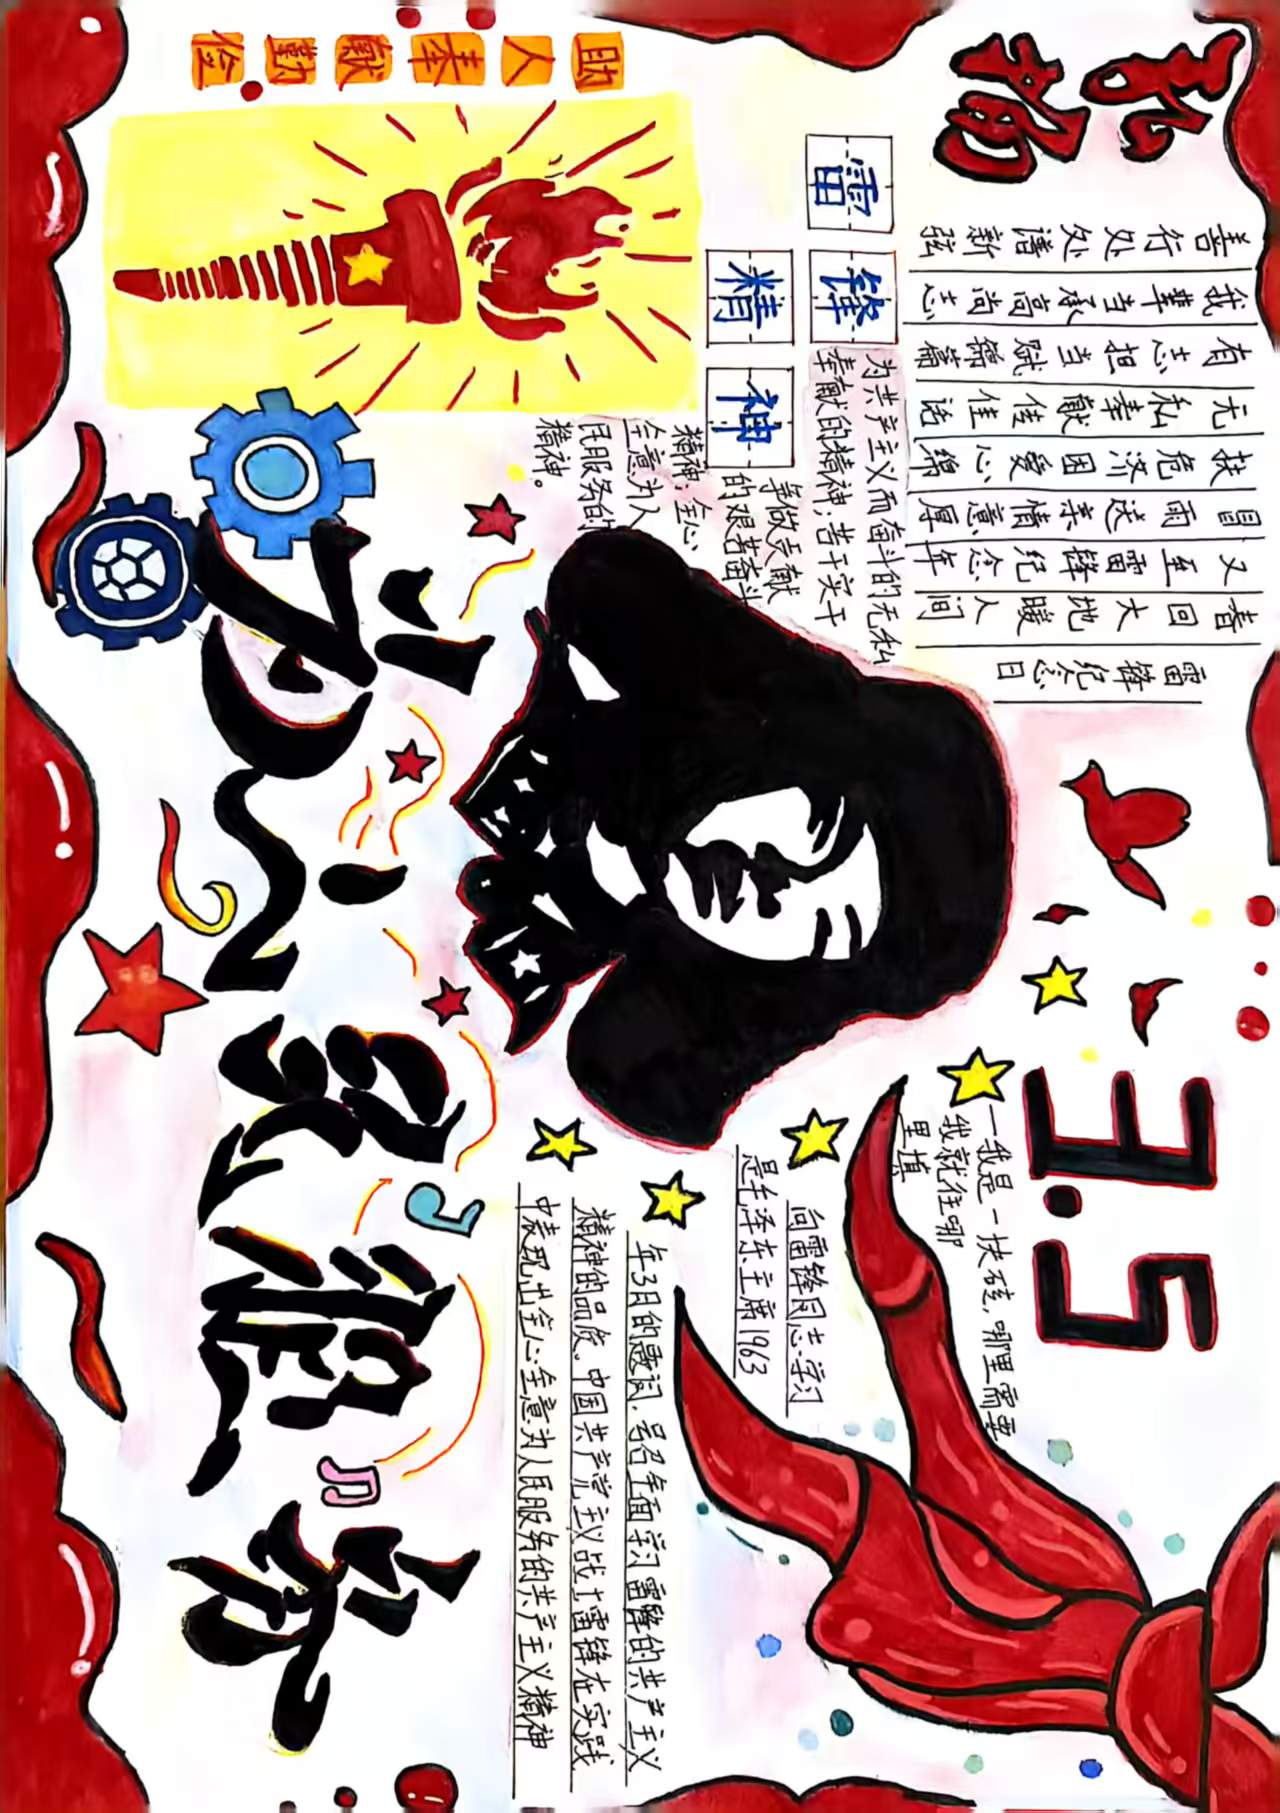 弘扬
雷锋纪念日
春回大地暖人间
又至雷锋纪念年
冒雨送亲情意厚
扶危济困爱心绵
无私奉献佳佳话
有志担当锦赋篇
我辈当承高尚志
善行处处谱新弦
3.5
一我是一块砖,哪里需要
我就往哪
里填
雷锋
精神
为共产主义而奋斗的无私
奉献的精神;苦干实干
争做贡献
的艰苦奋斗
精神;全心
全意为人
民服务的
精神。
向雷锋同志学习
是毛泽东主席1963
年3月的题词,号召全面学习雷锋的共产主义
精神的品质,中国共产党主义战士雷锋在实践
中表现出全心全意为人民服务的共产主义精神
助人奉献勤俭